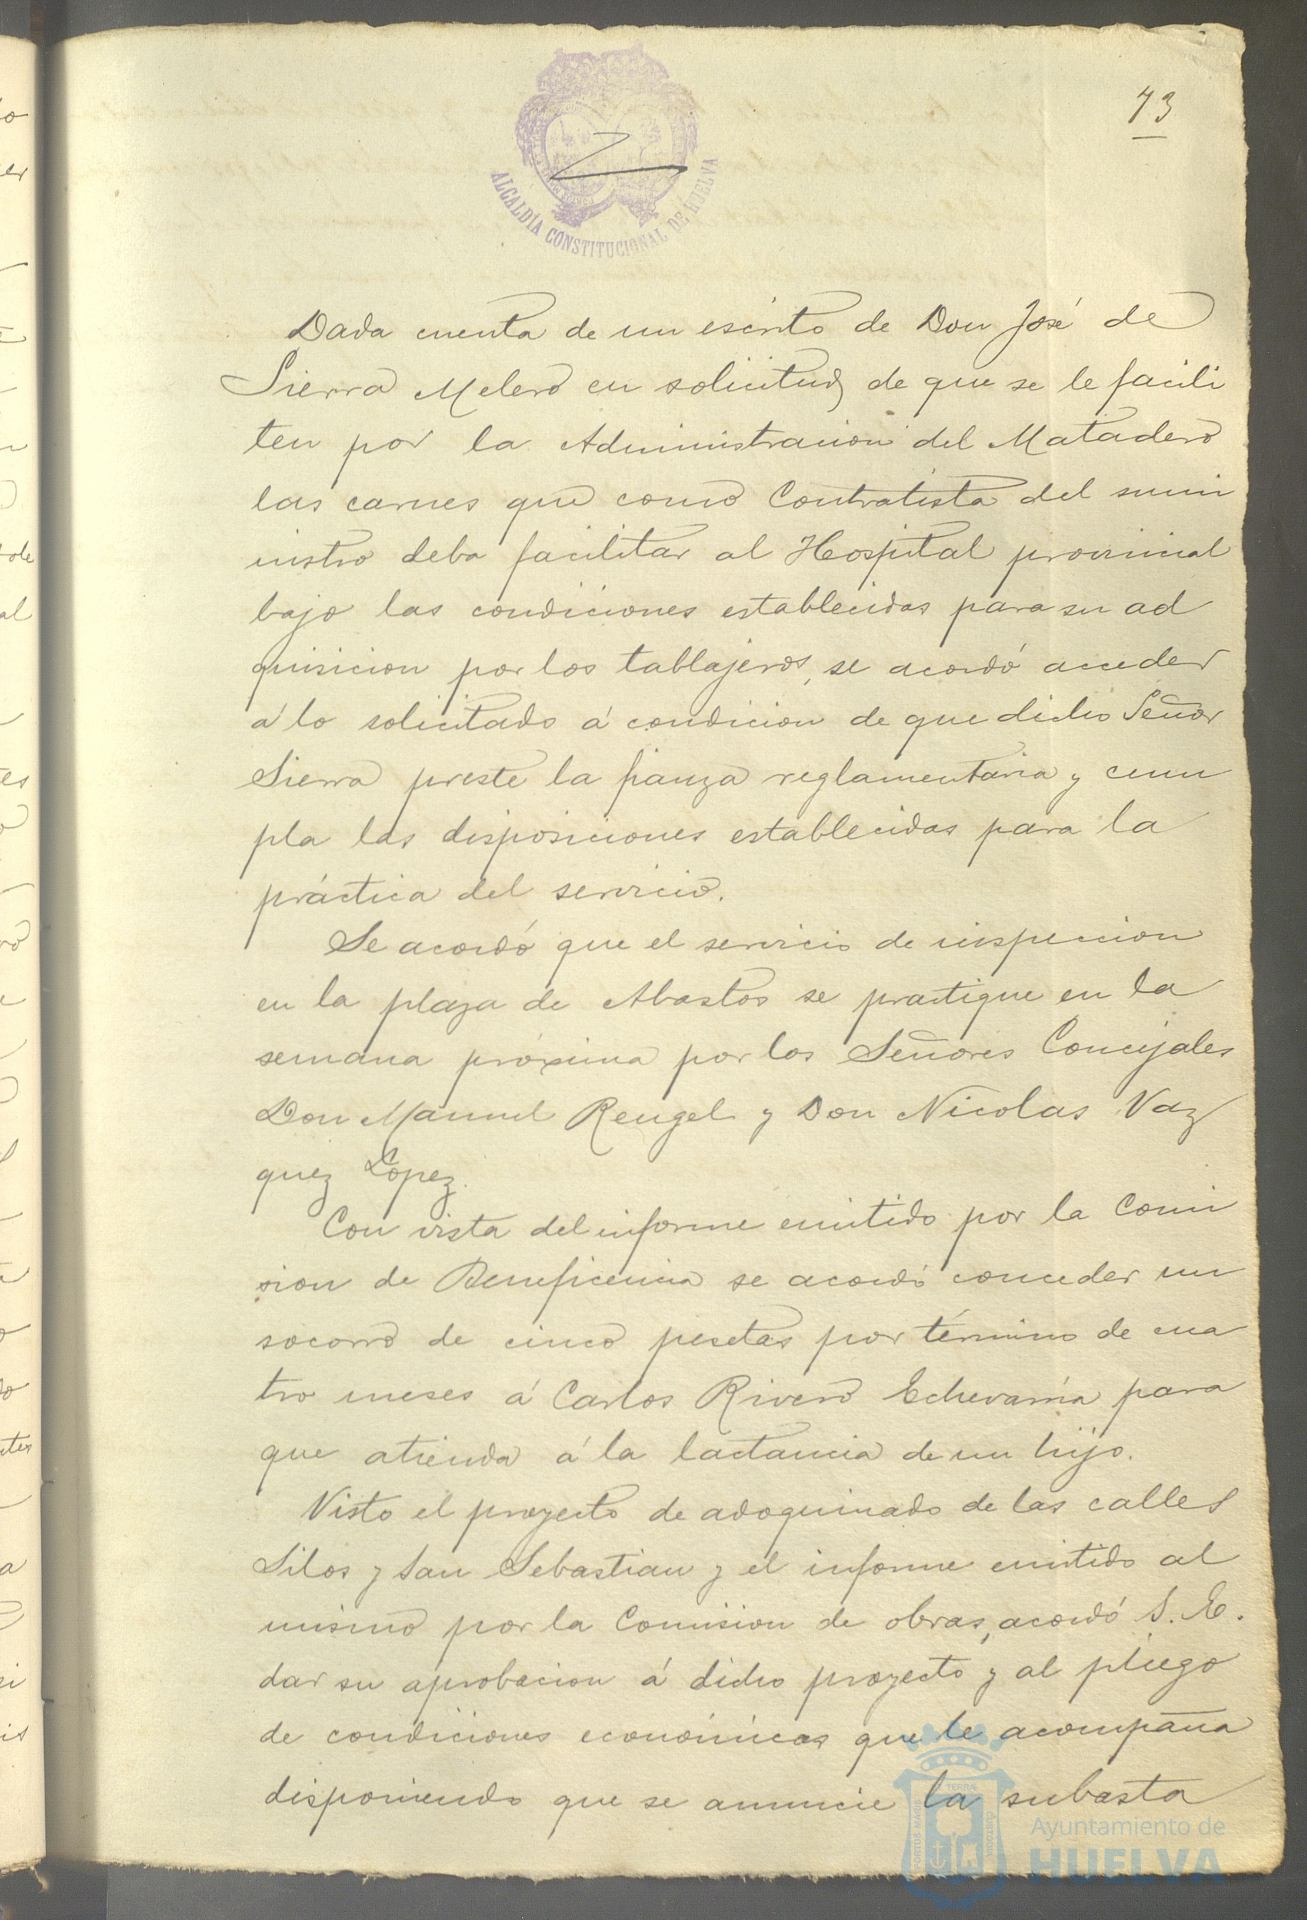 73
ALCALDÍA CONSTITUCIONAL DE HUELVA
Dada cuenta de un escrito de Don José de
Sierra Melero en solicitud de que se le facili
ten por la Administracion del Matadero
las carnes que como Contratista del sumi
nistro deba facilitar al Hospital provincial
bajo las condiciones establecidas para su ad
quisicion por los tablajeros, se acordó acceder
á lo solicitado á condicion de que dicho Señor
Sierra preste la fianza reglamentaria y cum
pla las disposiciones establecidas para la
práctica del servicio.
Se acordó que el servicio de inspeccion
en la plaza de Abastos se practique en la
semana próxima por los Señores Concejales
Don Manuel Rengel y Don Nicolas Vaz
quez López.
Con vista del informe emitido por la Comi
sion de Beneficencia se acordó conceder un
socorro de cinco pesetas por término de cua
tro meses á Carlos Rivero Echevarría para
que atienda á la lactancia de un hijo.
Visto el proyecto de adoquinado de las calles
Silos y San Sebastian y el informe emitido al
mismo por la Comision de obras, acordó S. E.
dar su aprobacion á dicho proyecto y al pliego
de condiciones económicas que le acompaña
disponiendo que se anuncie la subasta
Ayuntamiento de
HUELVA